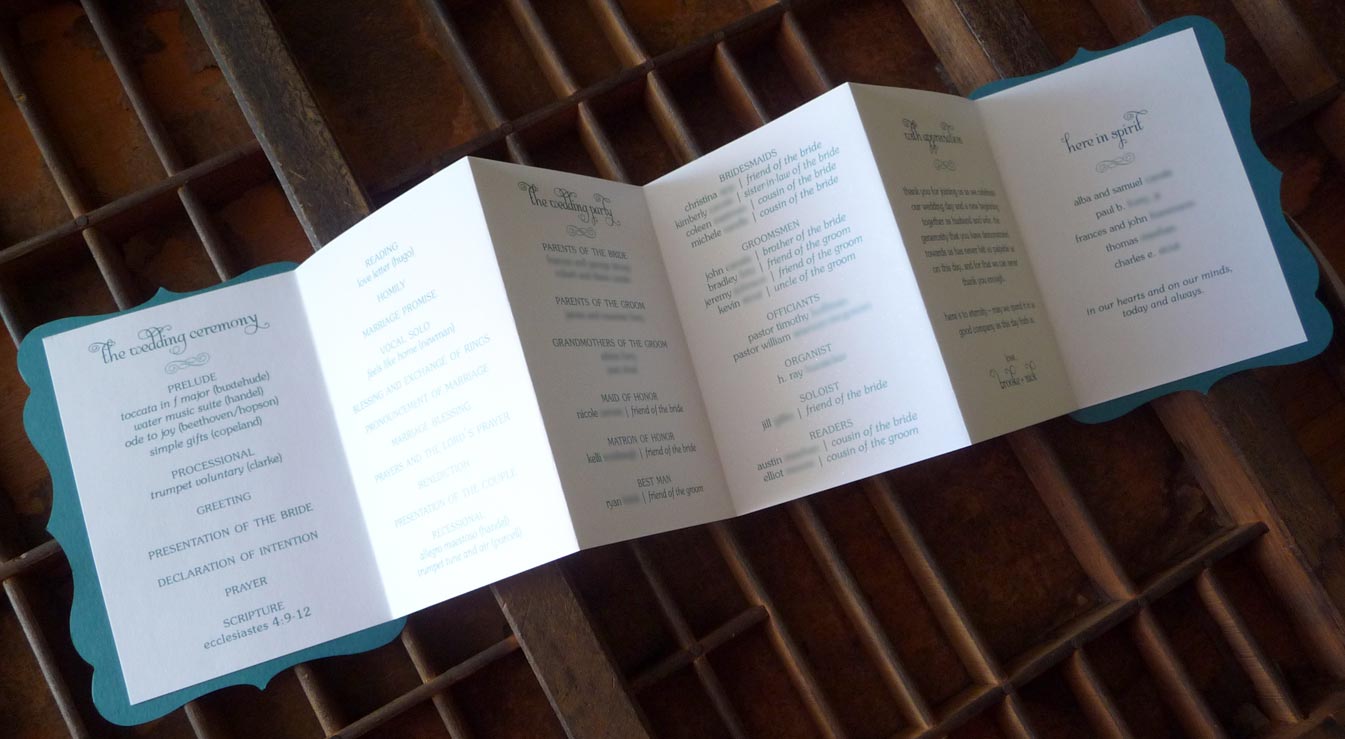 the wedding ceremony
PRELUDE
toccata in f major (buxtehude)
water music suite (handel)
ode to joy (beethoven/hopson)
simple gifts (copeland)
PROCESSIONAL
trumpet voluntary (clarke)
GREETING
PRESENTATION OF THE BRIDE
DECLARATION OF INTENTION
PRAYER
SCRIPTURE
ecclesiastes 4:9-12
READING
love letter (hugo)
HOMILY
MARRIAGE PROMISE
VOCAL SOLO
feels like home (newman)
BLESSING AND EXCHANGE OF RINGS
PRONOUNCEMENT OF MARRIAGE
MARRIAGE BLESSING
PRAYERS AND THE LORD'S PRAYER
BENEDICTION
PRESENTATION OF THE COUPLE
RECESSIONAL
allegro maestoso (handel)
trumpet tune and air (purcell)
the wedding party
PARENTS OF THE BRIDE
PARENTS OF THE GROOM
GRANDMOTHERS OF THE GROOM
MAID OF HONOR
nicole | friend of the bride
MATRON OF HONOR
kelli | friend of the bride
BEST MAN
ryan | friend of the groom
BRIDESMAIDS
christina | friend of the bride
kimberly | sister-in-law of the bride
coleen | cousin of the bride
michele | cousin of the bride
GROOMSMEN
john | brother of the bride
bradley | friend of the groom
jeremy | friend of the groom
kevin | uncle of the groom
OFFICIANTS
pastor timothy
pastor william
ORGANIST
h. ray
SOLOIST
jill | friend of the bride
READERS
austin | cousin of the bride
elliot | cousin of the groom
with appreciation
thank you for joining us as we celebrate
our wedding day and a new beginning
together as husband and wife. the
generosity that you have demonstrated
towards us has never felt so palpable as
on this day, and for that we can never
thank you enough.
here's to eternity - may we spend it in as
good company as this day finds us.
love,
brooke + nick
here in spirit
alba and samuel
paul b.
frances and john
thomas
charles e.
in our hearts and on our minds,
today and always.